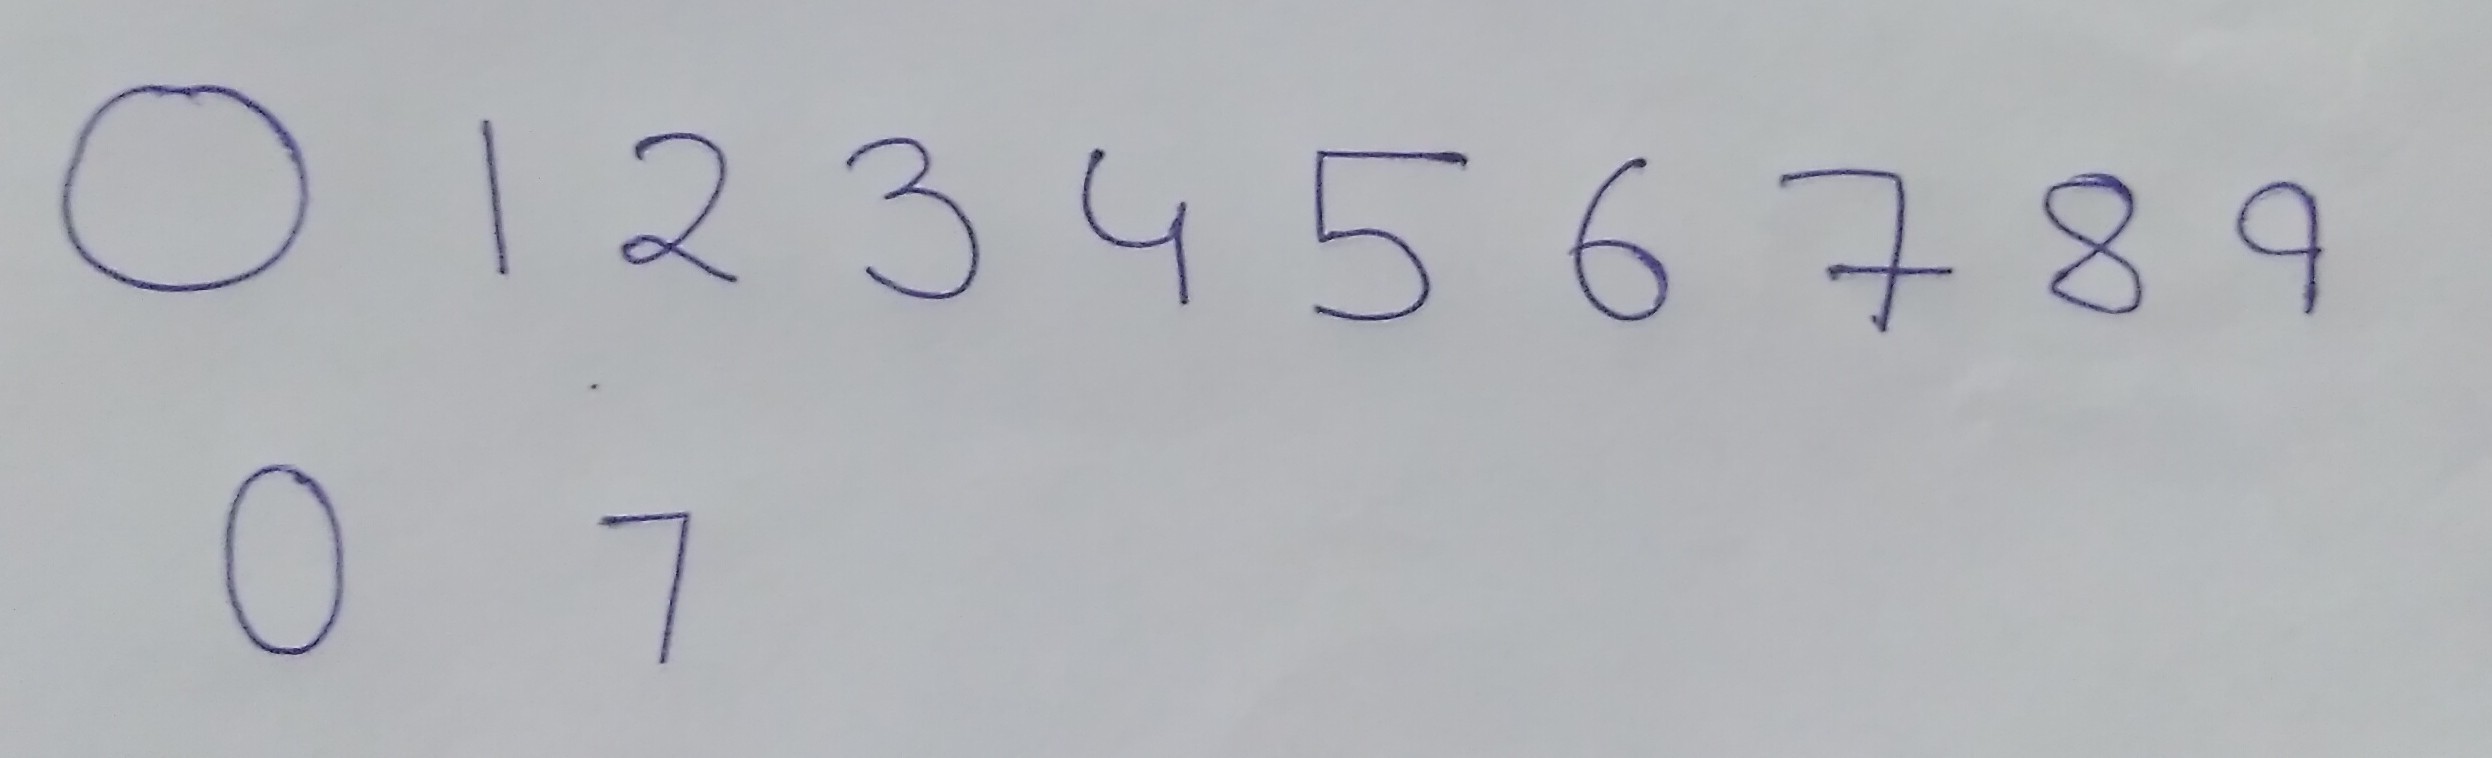 0 1 2 3 4 5 6 7 8 9
0 7